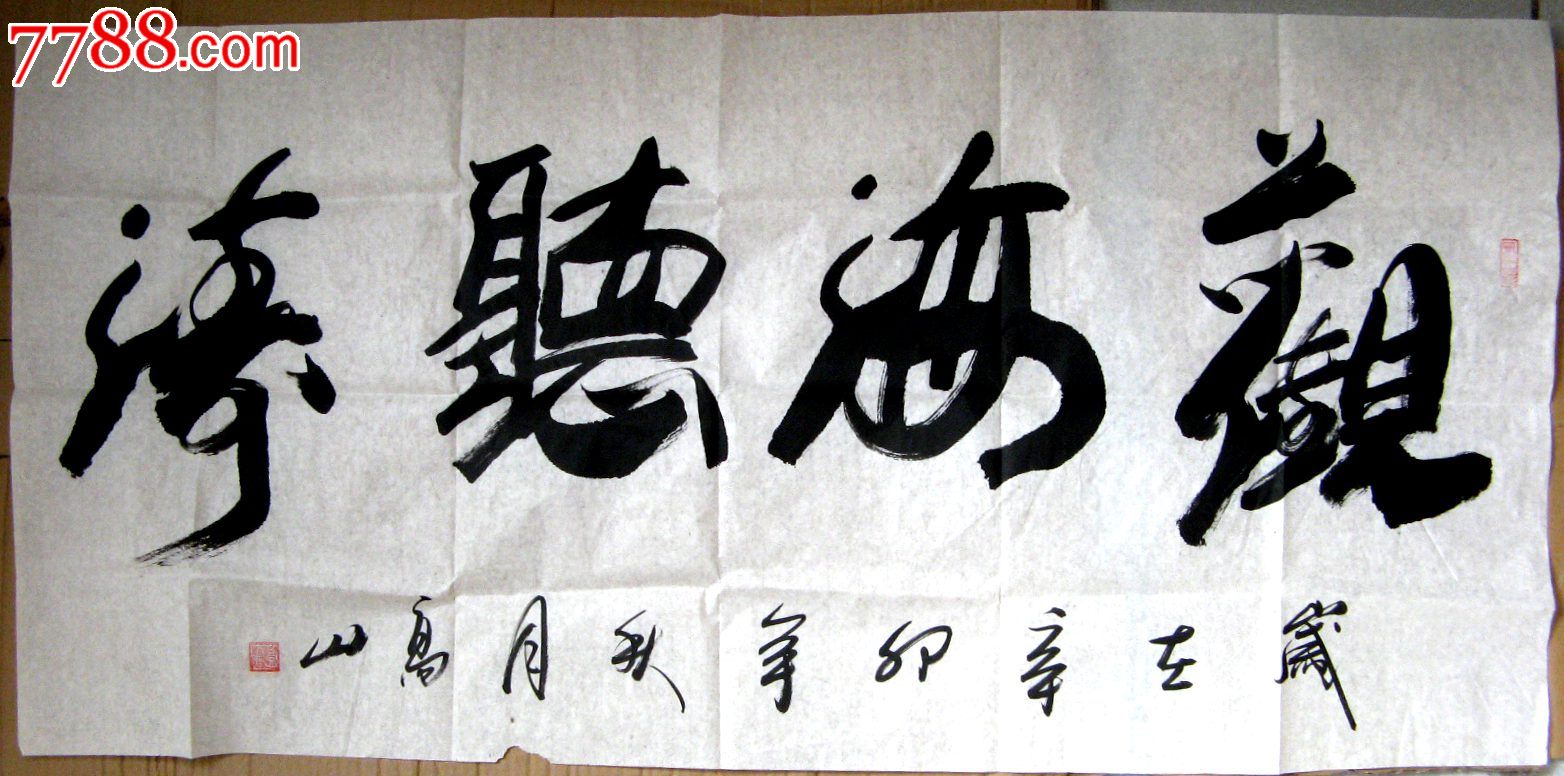 7788.com
觀海聽濤
歲在辛卯年秋月高山